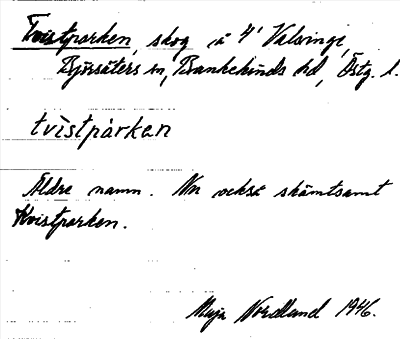 Tvistparken, skog å 4' Valsinge,
Björsäters sn, Bankekinds hd, Östg. l.
tvistparken
Äldre namn. Nu också skämtsamt
Kvistparken.
Maja Nordlund 1946.